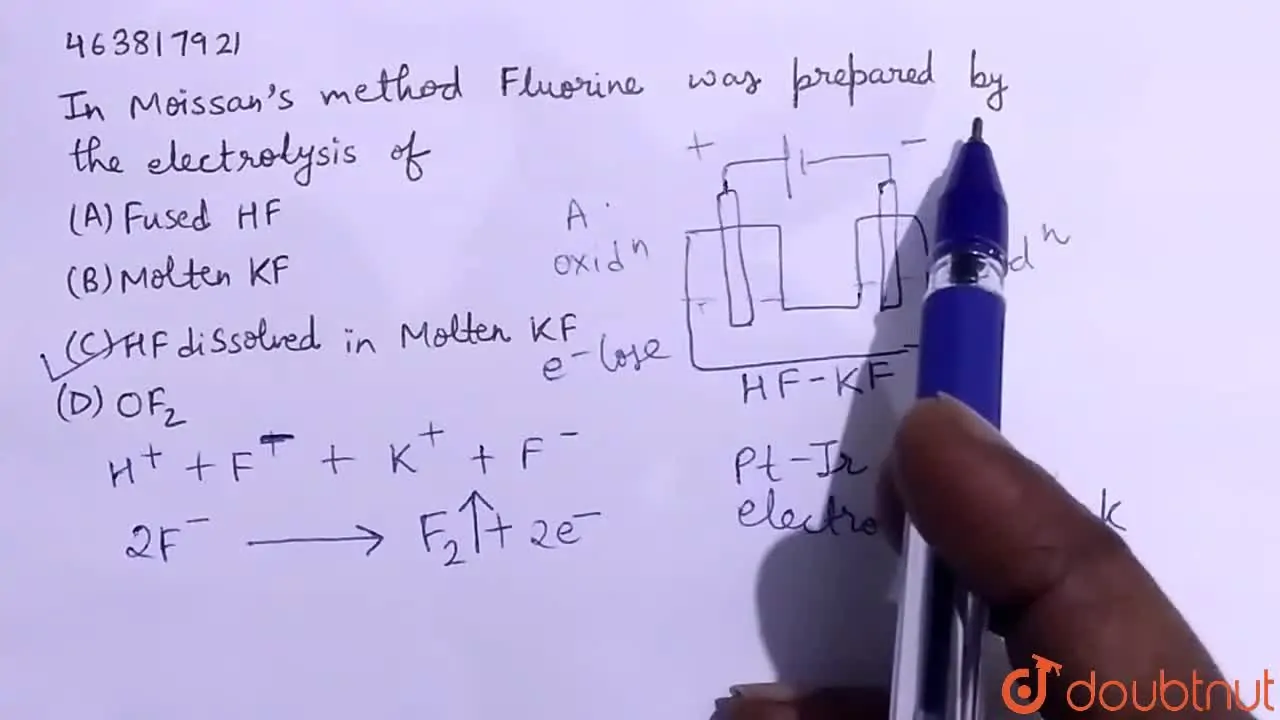 463817921
In Moissan's method Fluorine was prepared by
the electrolysis of
(A) Fused HF
(B) Molten KF
(C) HF dissolved in Molten KF
(D) OF₂
+ −
A
oxidⁿ
e⁻ lose
HF-KF
H⁺ + F⁻ + K⁺ + F⁻
2F⁻ ⟶ F₂↑ + 2e⁻
Pt-Ir
doubtnut